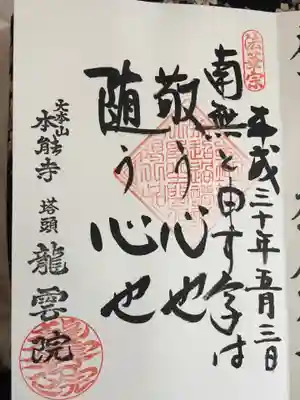 法華宗
平成三十年五月三日
南無と申す字は
敬う心也
随う心也
大本山
本能寺 塔頭 龍雲院